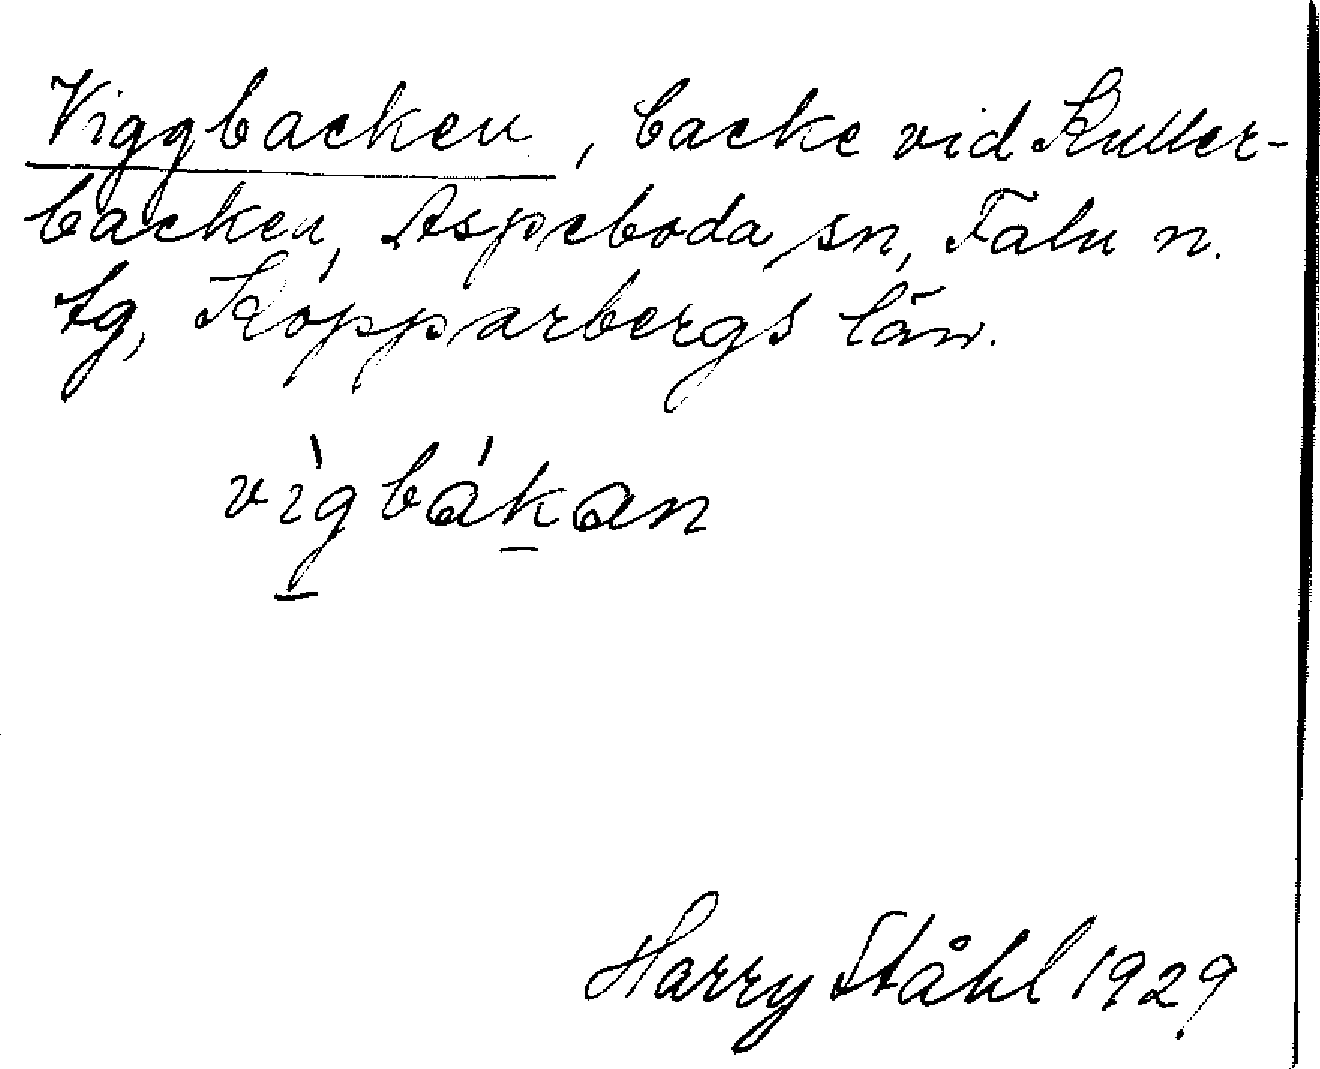 Viggbacken, backe vid Kuller-
backen, Aspeboda sn, Falu n.
tg, Kopparbergs län.
vìgbákan
Harry Ståhl 1929